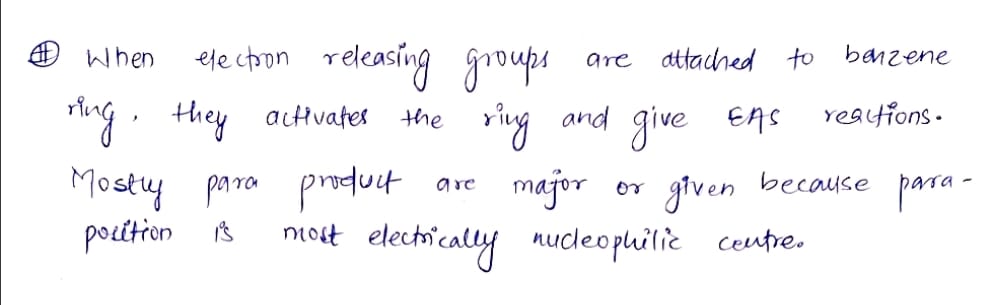 # When electron releasing groups are attached to benzene
ring, they activates the ring and give EAS reactions.
Mostly para product are major or given because para-
position is most electrically nucleophilic centre.